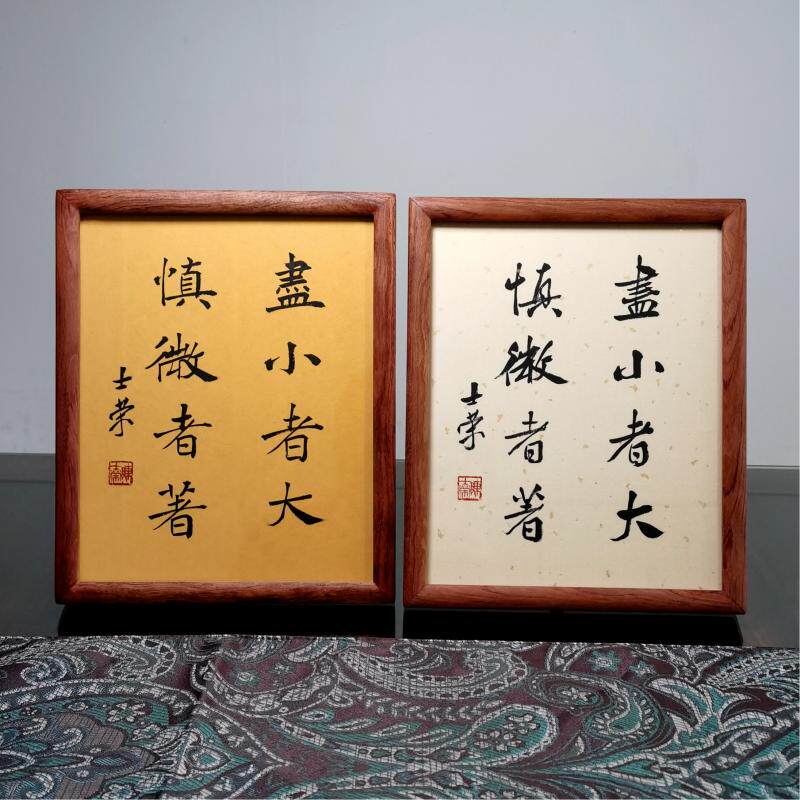 盡小者大
慎微者著
士荣
盡小者大
慎微者著
士荣